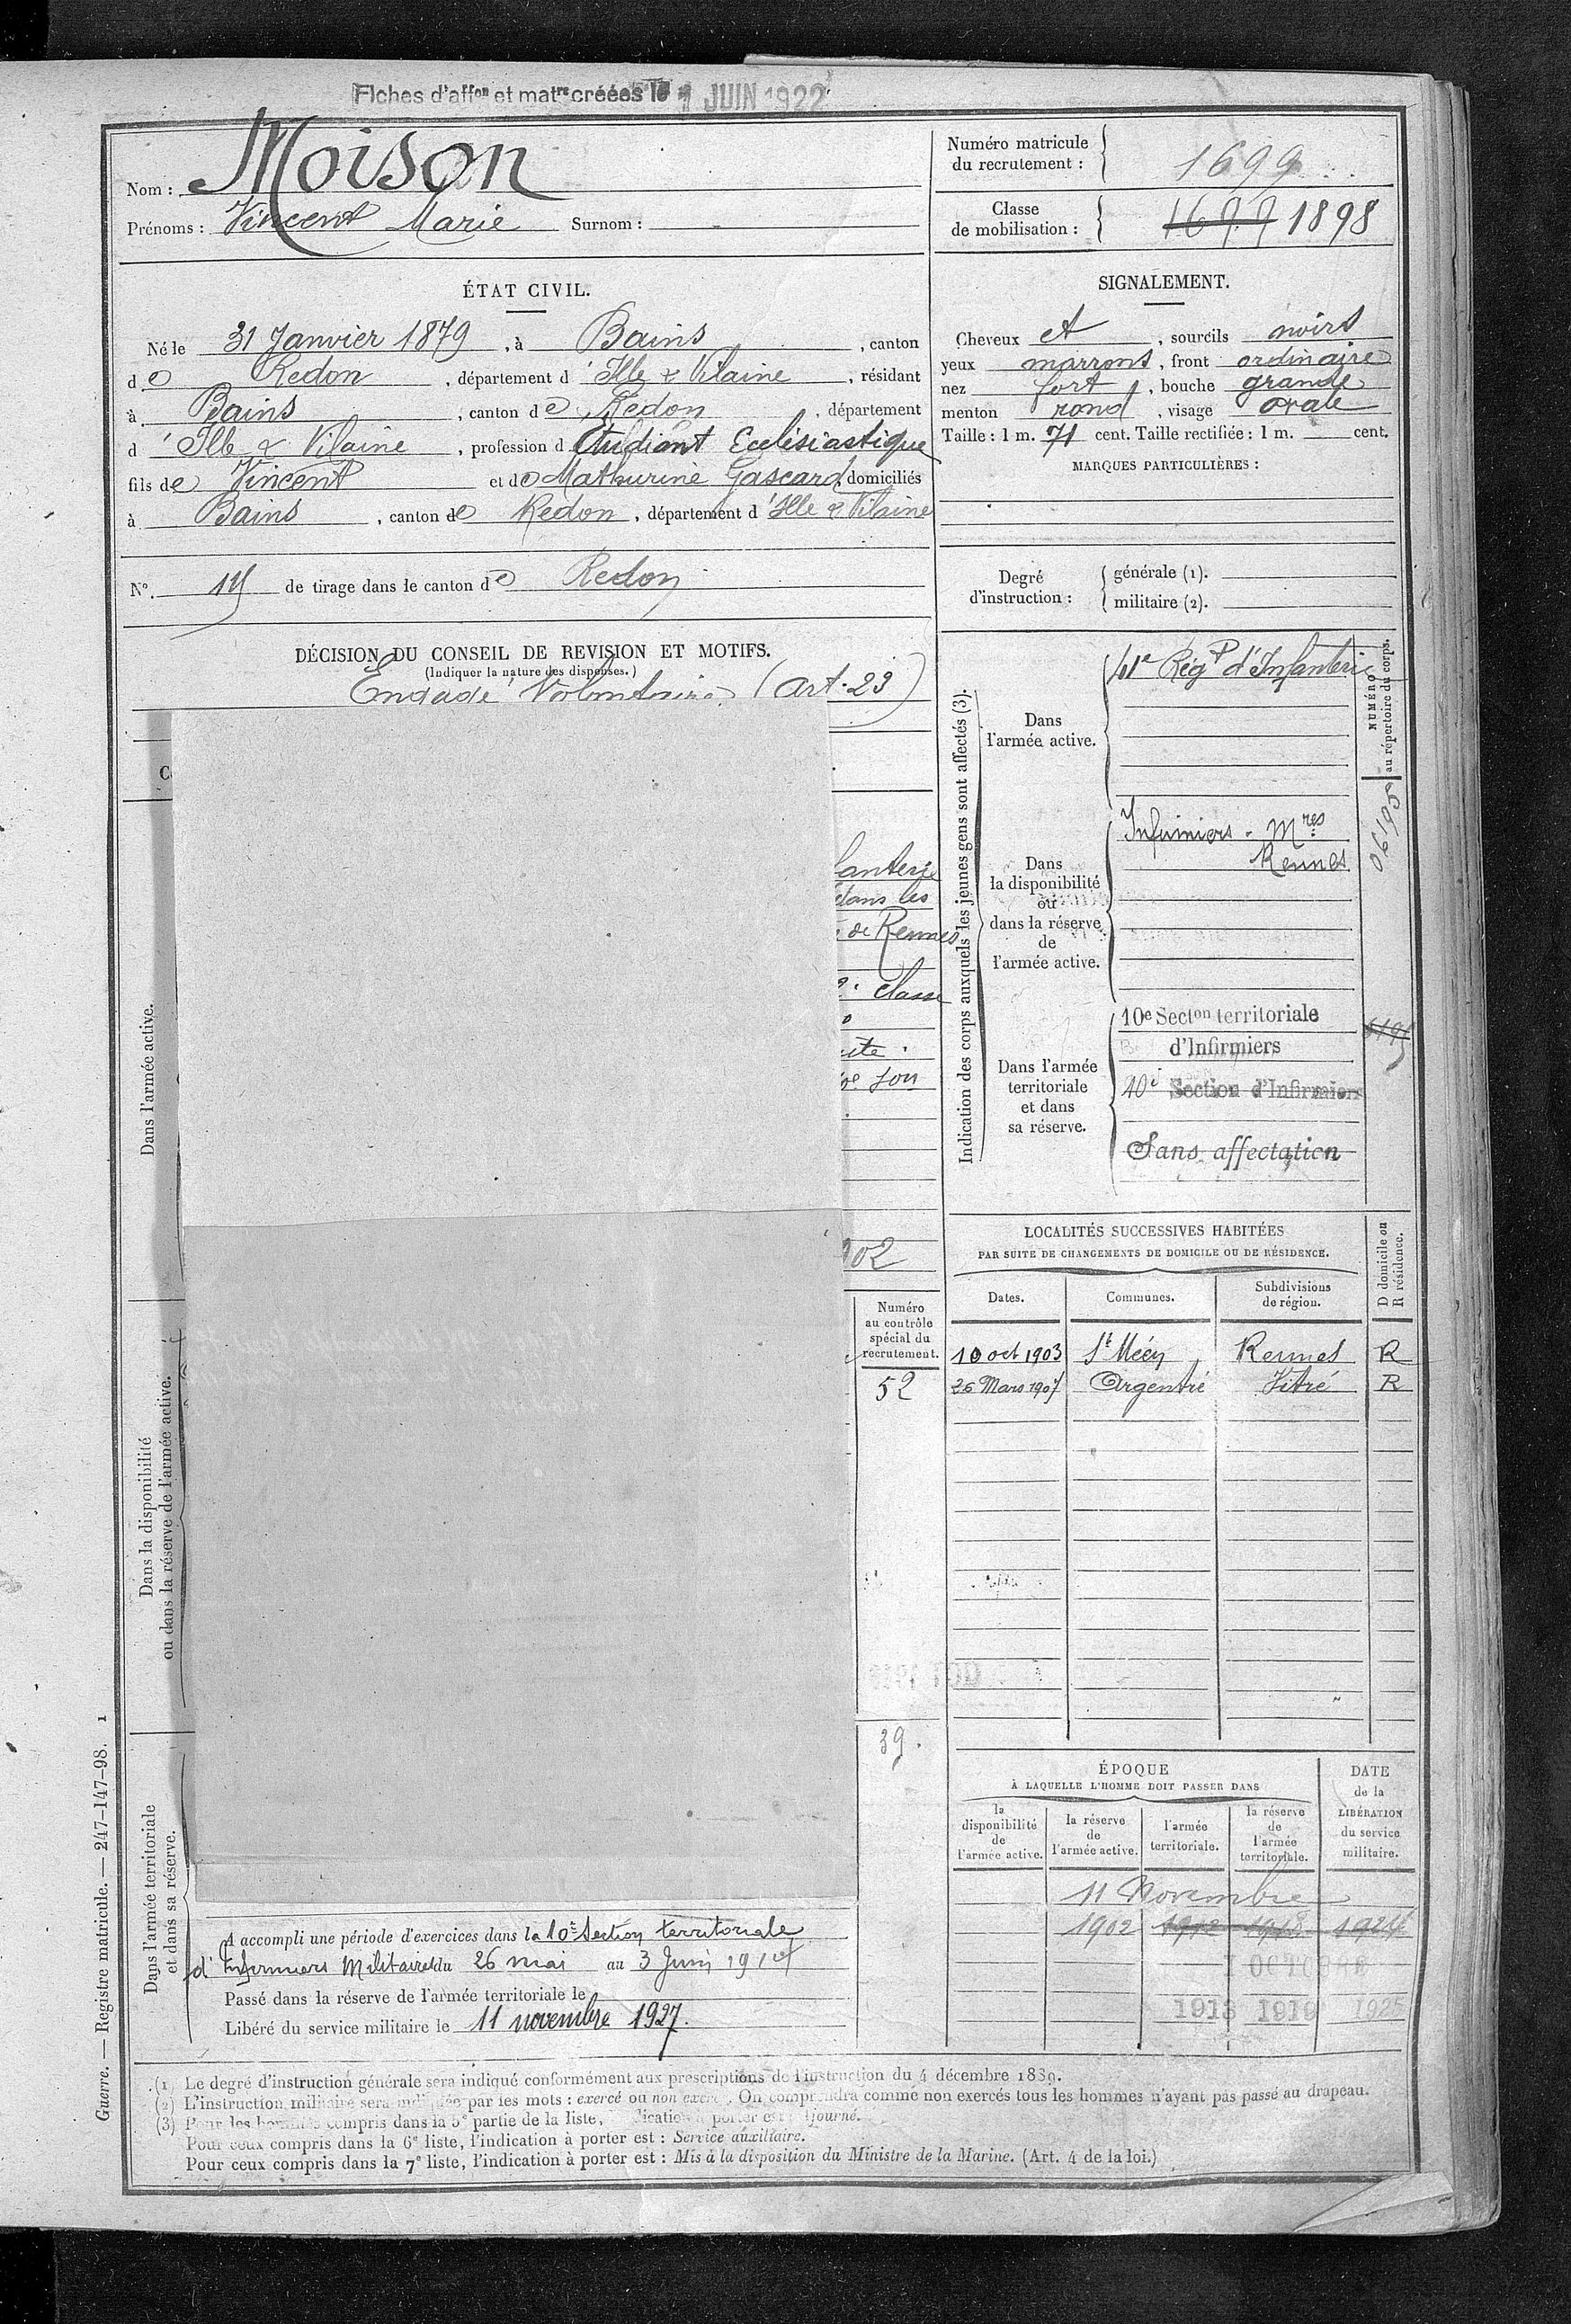 Fiches d'affon et matre créées le 1 JUIN 1922
Nom : Moison
Prénoms : Vincent Marie Surnom :
Numéro matricule du recrutement : 1699
Classe de mobilisation : 1898
ÉTAT CIVIL.
Né le 31 Janvier 1879, à Bains, canton
de Redon, département d'Ille & Vilaine, résidant
à Bains, canton de Redon, département
d'Ille & Vilaine, profession d'Etudiant Ecclésiastique
fils de Vincent et de Mathurine Gascard, domiciliés
à Bains, canton de Redon, département d'Ille & Vilaine
N°. de tirage dans le canton de Redon
SIGNALEMENT.
Cheveux et, sourcils noirs
yeux marrons, front ordinaire
nez fort, bouche grande
menton rond, visage ovale
Taille : 1 m. 71 cent. Taille rectifiée : 1 m. cent.
MARQUES PARTICULIÈRES :
Degré d'instruction :
générale (1).
militaire (2).
DÉCISION DU CONSEIL DE REVISION ET MOTIFS.
(Indiquer la nature des dispenses.)
Engagé Volontaire (art. 23)
Dans l'armée active.
fanterie
dans les
de Rennes
classe
son
902
Dans la disponibilité
ou dans la réserve de l'armée active.
Numéro
au contrôle
spécial du
recrutement.
52
39.
Indication des corps auxquels les jeunes gens sont affectés (3).
Dans
l'armée active.
41e Régt d'Infanterie
NUMÉRO
au répertoire du corps.
Dans
la disponibilité
ou
dans la réserve
de
l'armée active.
Infirmiers Mres
Rennes
06195
Dans l'armée
territoriale
et dans
sa réserve.
10e Secton territoriale
d'Infirmiers
10e Section d'Infirmiers
Sans affectation
LOCALITÉS SUCCESSIVES HABITÉES
PAR SUITE DE CHANGEMENTS DE DOMICILE OU DE RÉSIDENCE.
Dates. Communes. Subdivisions de région. D domicile ou R résidence.
10 oct 1903 St Méen Rennes R
26 Mars 1907 Argentré Vitré R
ÉPOQUE
À LAQUELLE L'HOMME DOIT PASSER DANS
DATE
de la
LIBÉRATION
du service
militaire.
la disponibilité de l'armée active.
la réserve de l'armée active.
l'armée territoriale.
la réserve de l'armée territoriale.
11 Novembre
1902 1912 1918 1924
1 OCTOBRE
1913 1919 1925
Dans l'armée territoriale
et dans sa réserve.
A accompli une période d'exercices dans la 10e Section territoriale
d'Infirmiers Militaires du 26 mai au 3 Juin 1914
Passé dans la réserve de l'armée territoriale le
Libéré du service militaire le 11 novembre 1927.
(1) Le degré d'instruction générale sera indiqué conformément aux prescriptions de l'instruction du 4 décembre 1889.
(2) L'instruction militaire sera indiquée par les mots : exercé ou non exercé. On comprendra comme non exercés tous les hommes n'ayant pas passé au drapeau.
(3) Pour les hommes compris dans la 5e partie de la liste, l'indication à porter est : Ajourné.
Pour ceux compris dans la 6e liste, l'indication à porter est : Service auxiliaire.
Pour ceux compris dans la 7e liste, l'indication à porter est : Mis à la disposition du Ministre de la Marine. (Art. 4 de la loi.)
Guerre. — Registre matricule. — 247-147-98. 1